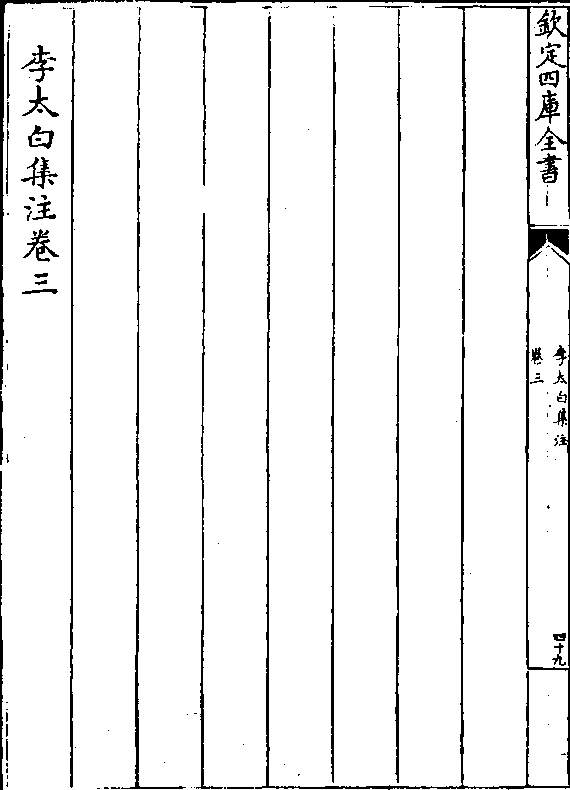 欽定四庫全書
李太白集注
卷三
四十九
李太白集注卷三